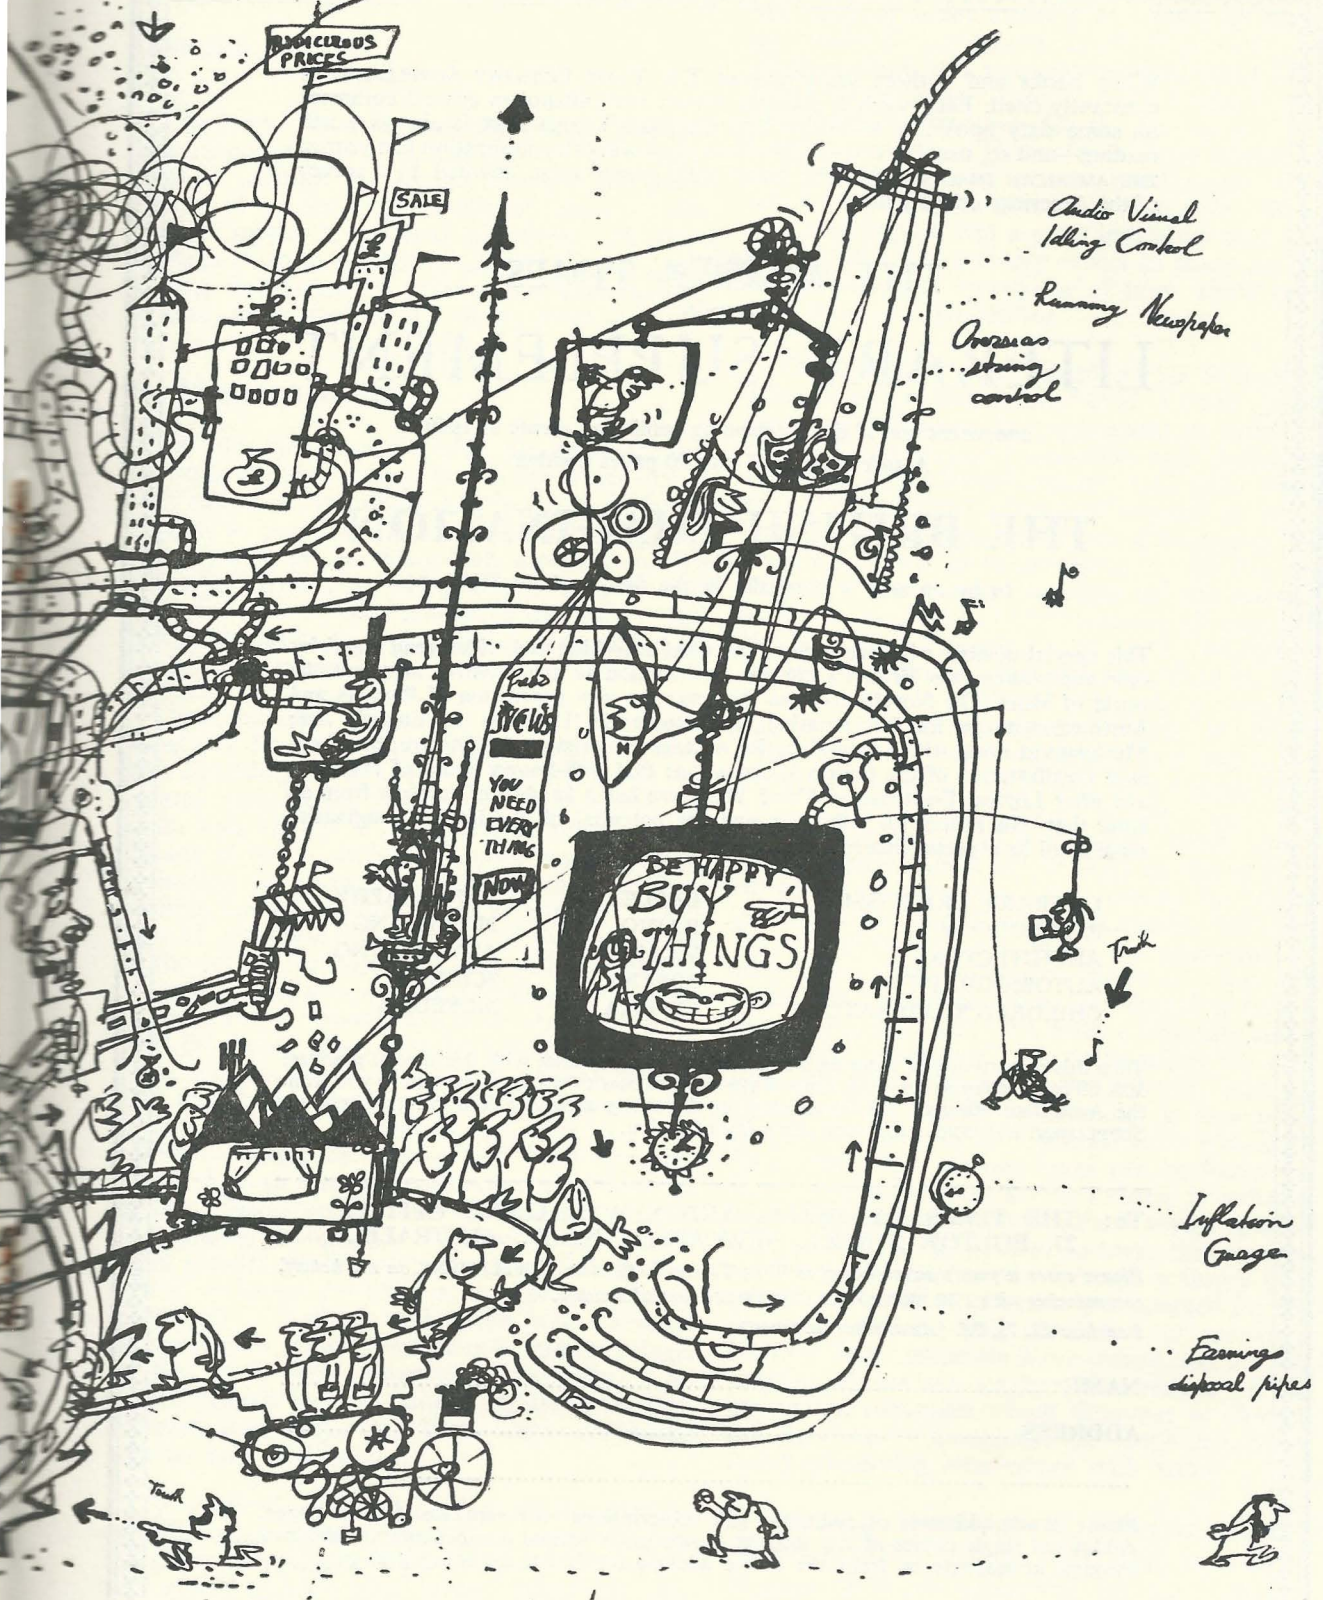 RIDICULOUS
PRICES
SALE
Audio Visual
Idling Control
Running Newspaper
Overseas
string
control
NEWS
YOU
NEED
EVERY
THING
NOW
N
BE HAPPY,
BUY
THINGS
Truth
Inflation
Guage
Earnings
disposal pipes
Truth